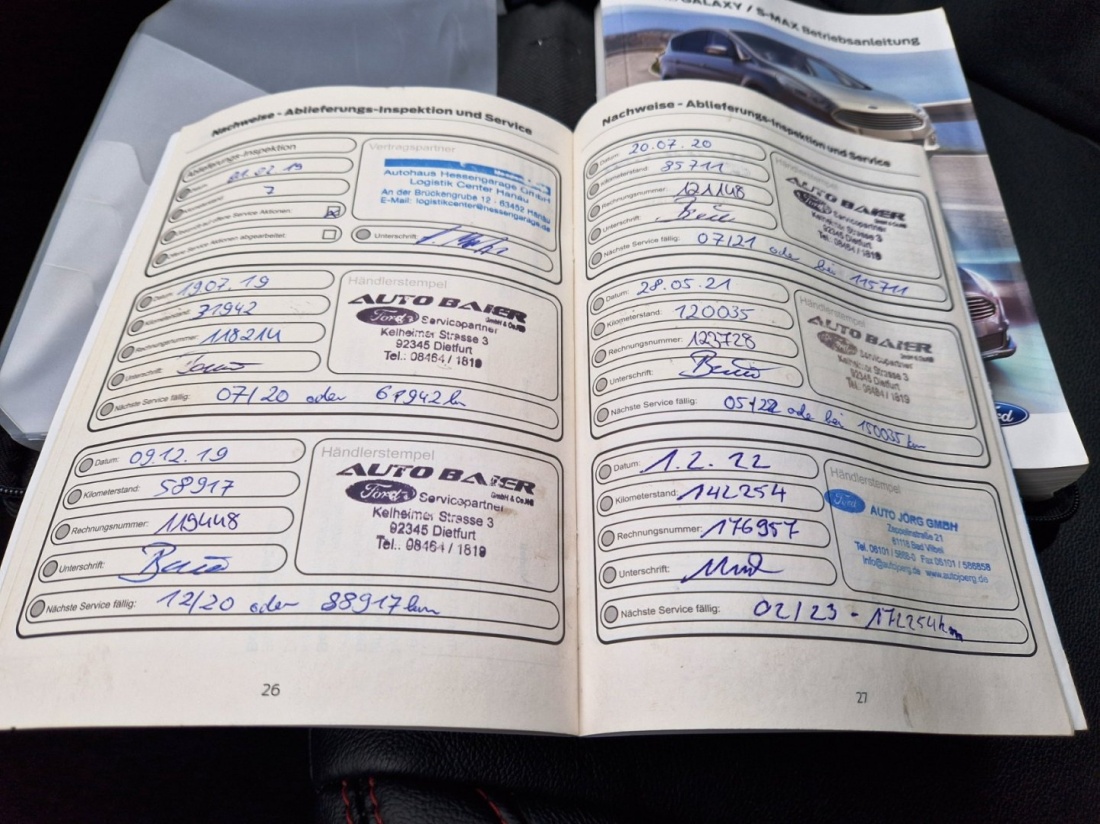 GALAXY / S-MAX Betriebsanleitung
Nachweise - Ablieferungs-Inspektion und Service
Ablieferungs-Inspektion
7
Service Aktionen:
Offene Service Aktionen abgearbeitet:
Vertragspartner
Autohaus Hessengarage GmbH
Logistik Center Hanau
An der Brückengrube 12 · 63452 Hanau
E-Mail: logistikcenter@hessengarage.de
Unterschrift:
Datum: 19.07.19
Kilometerstand: 71942
Rechnungsnummer: 118214
Unterschrift:
Nächste Service fällig: 07/20 oder 61942 km
Händlerstempel
AUTO BAIER
GmbH & Co.KG
Ford Servicepartner
Kelheimer Strasse 3
92345 Dietfurt
Tel.: 08464 / 1819
Datum: 09.12.19
Kilometerstand: 58917
Rechnungsnummer: 119448
Unterschrift:
Nächste Service fällig: 12/20 oder 88917 km
Händlerstempel
AUTO BAIER
GmbH & Co.KG
Ford Servicepartner
Kelheimer Strasse 3
92345 Dietfurt
Tel.: 08464 / 1819
26
Nachweise - Ablieferungs-Inspektion und Service
Datum: 20.07.20
Kilometerstand: 85711
Rechnungsnummer: 121148
Unterschrift:
Nächste Service fällig: 07/21 oder bei 115711
Händlerstempel
AUTO BAIER
Ford Servicepartner
Kelheimer Strasse 3
92345 Dietfurt
Tel.: 08464 / 1819
Datum: 28.05.21
Kilometerstand: 120035
Rechnungsnummer: 123728
Unterschrift:
Nächste Service fällig: 05/22 oder bei 150035 km
Händlerstempel
AUTO BAIER
GmbH & Co.KG
Ford Servicepartner
Kelheimer Strasse 3
92345 Dietfurt
Tel.: 08464 / 1819
Datum: 1.2.22
Kilometerstand: 142254
Rechnungsnummer: 176957
Unterschrift:
Nächste Service fällig: 02/23 - 172254 km
Händlerstempel
Ford AUTO JÖRG GMBH
Zeppelinstraße 21
61118 Bad Vilbel
Tel. 06101 / 5868-0 Fax 06101 / 586858
info@autojoerg.de www.autojoerg.de
27
Ford